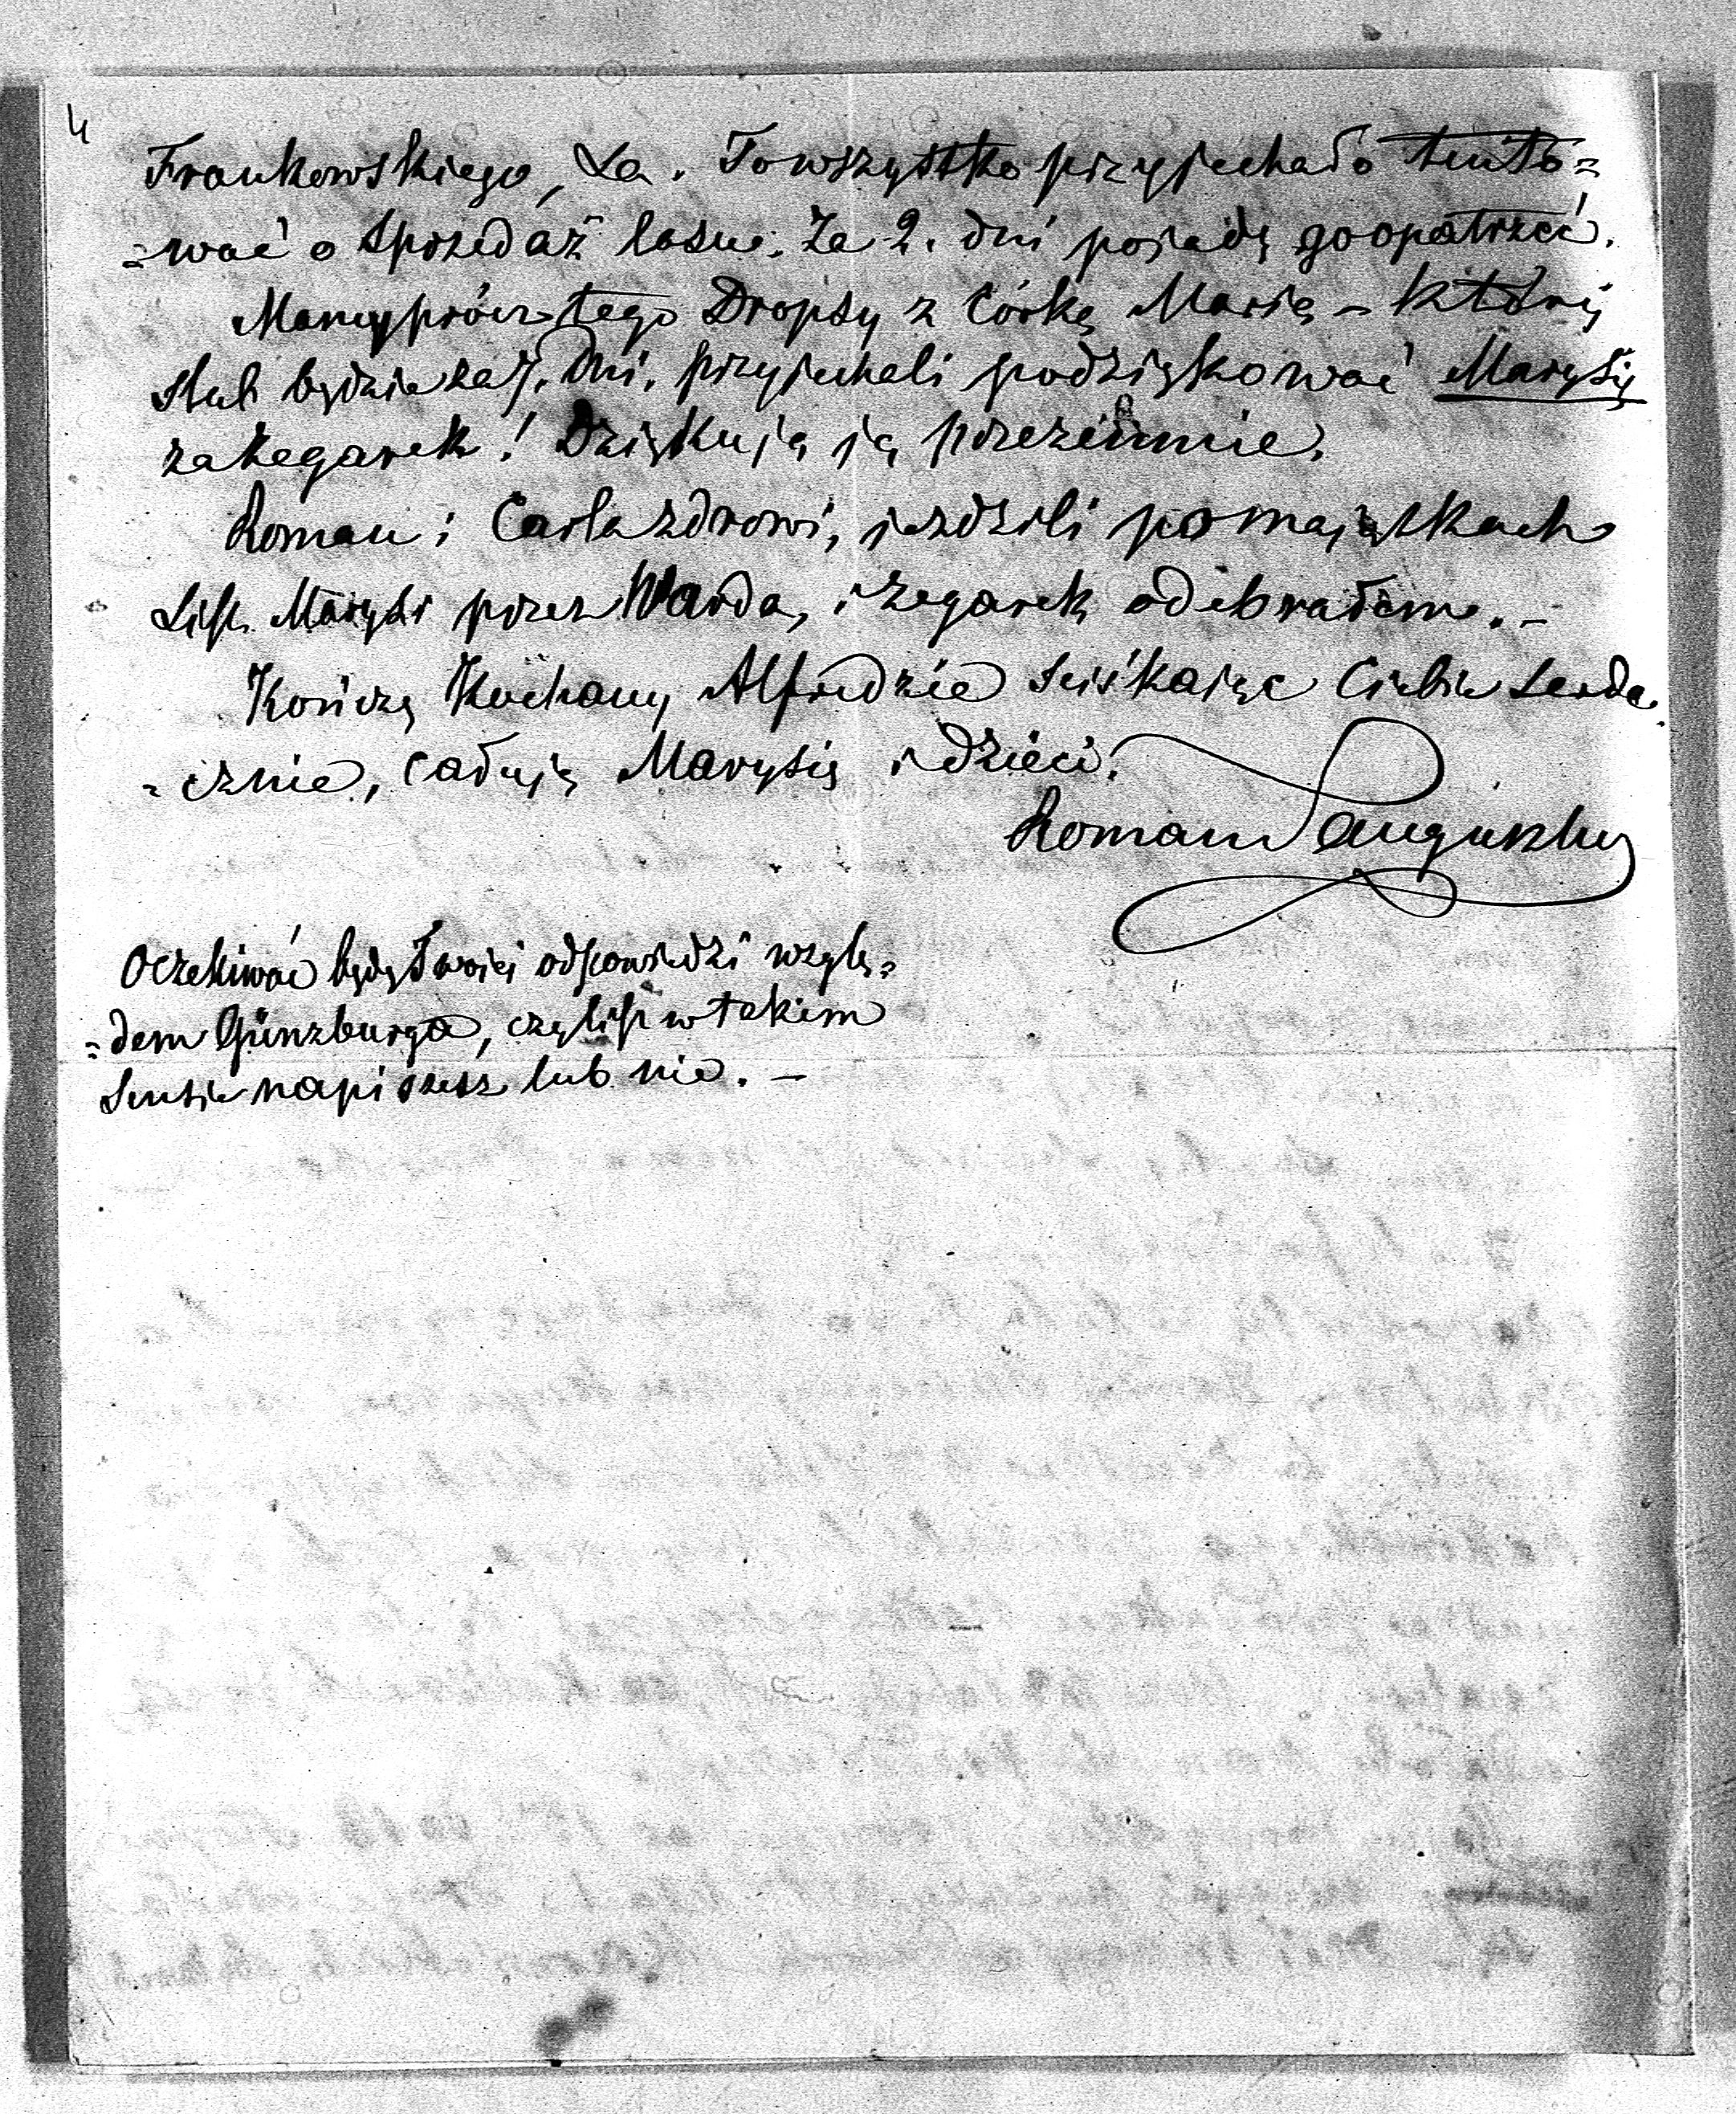 4
Frankowskiego, &a. To wszystko przyjechało tento=
=wać o sprzedaż lasu. Za 2. dni pojadę go opatrzeć.
Mamy prócz tego Dropsy z Córką Marią – której
ślub będzie za 7. dni. przyjechali podziękować Marysię
za zegarek! Dziękują ją przezemnie.
Roman i Carla zdrowi, jezdzili po majątkach
List Marysi przez Warda, i zegarek odebrałem. –
Kończę Kochany Alfredzie sciśkając Ciebie Serde=
=cznie, całuję Marysię i dzieci.
Roman Sanguszko
Oczekiwać będę Twoiej odpowiedzi wzglę=
=dem Günzburga, czyliś w takim
Sensie napiszesz lub nie. –